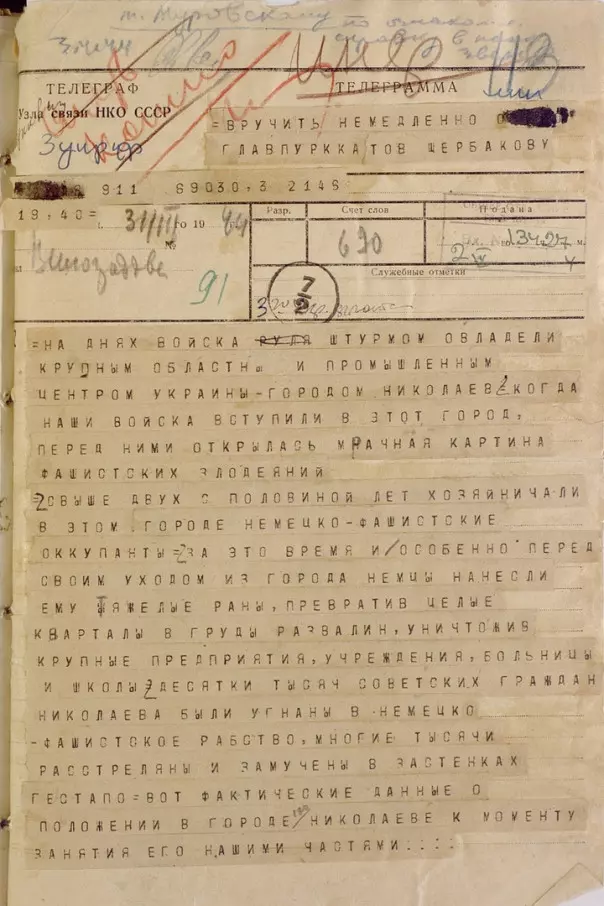 т. Муровскому
ТЕЛЕГРАФ
Узла связи НКО СССР
ТЕЛЕГРАММА
=ВРУЧИТЬ НЕМЕДЛЕННО
ГЛАВПУРККАТОВ ЩЕРБАКОВУ
911 69030.3 2146
19.40=
31/III го 1944
№
91
Разр.
Счет слов
690
Подана
Служебные отметки
7/2
=НА ДНЯХ ВОЙСКА РУЛЯ ШТУРМОМ ОВЛАДЕЛИ
КРУПНЫМ ОБЛАСТНЫ И ПРОМЫШЛЕННЫМ
ЦЕНТРОМ УКРАИНЫ-ГОРОДОМ НИКОЛАЕВ КОГДА
НАШИ ВОЙСКА ВСТУПИЛИ В ЭТОТ ГОРОД,
ПЕРЕД НИМИ ОТКРЫЛАСЬ МРАЧНАЯ КАРТИНА
ФАШИСТСКИХ ЗЛОДЕЯНИЙ
СВЫШЕ ДВУХ С ПОЛОВИНОЙ ЛЕТ ХОЗЯЙНИЧАЛИ
В ЭТОМ ГОРОДЕ НЕМЕЦКО-ФАШИСТСКИЕ
ОККУПАНТЫ=ЗА ЭТО ВРЕМЯ И ОСОБЕННО ПЕРЕД
СВОИМ УХОДОМ ИЗ ГОРОДА НЕМЦЫ НАНЕСЛИ
ЕМУ ТЯЖЕЛЫЕ РАНЫ, ПРЕВРАТИВ ЦЕЛЫЕ
КВАРТАЛЫ В ГРУДЫ РАЗВАЛИН, УНИЧТОЖИВ
КРУПНЫЕ ПРЕДПРИЯТИЯ, УЧРЕЖДЕНИЯ, БОЛЬНИЦЫ
И ШКОЛЫ ДЕСЯТКИ ТЫСЯЧ СОВЕТСКИХ ГРАЖДАН
НИКОЛАЕВА БЫЛИ УГНАНЫ В НЕМЕЦКО
-ФАШИСТСКОЕ РАБСТВО, МНОГИЕ ТЫСЯЧИ
РАССТРЕЛЯНЫ И ЗАМУЧЕНЫ В ЗАСТЕНКАХ
ГЕСТАПО=ВОТ ФАКТИЧЕСКИЕ ДАННЫЕ О
ПОЛОЖЕНИИ В ГОРОДЕ НИКОЛАЕВЕ К МОМЕНТУ
ЗАНЯТИЯ ЕГО НАШИМИ ЧАСТЯМИ::::